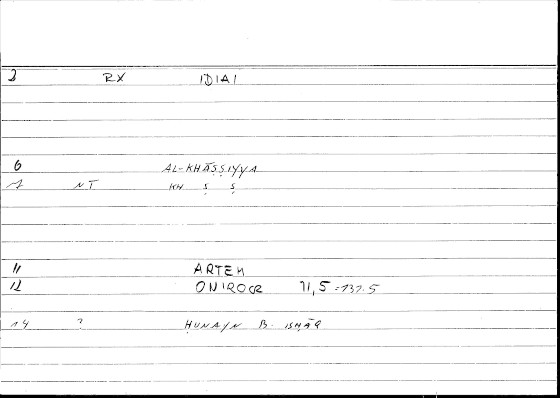 2 RX IDIAI
6 AL-KHĀṢṢIYYA
7 NT KH Ṣ Ṣ
11 ARTEM
12 ONIROCR 71,5 = 137.5
14 ? ḤUNAYN B. ISḤĀQ